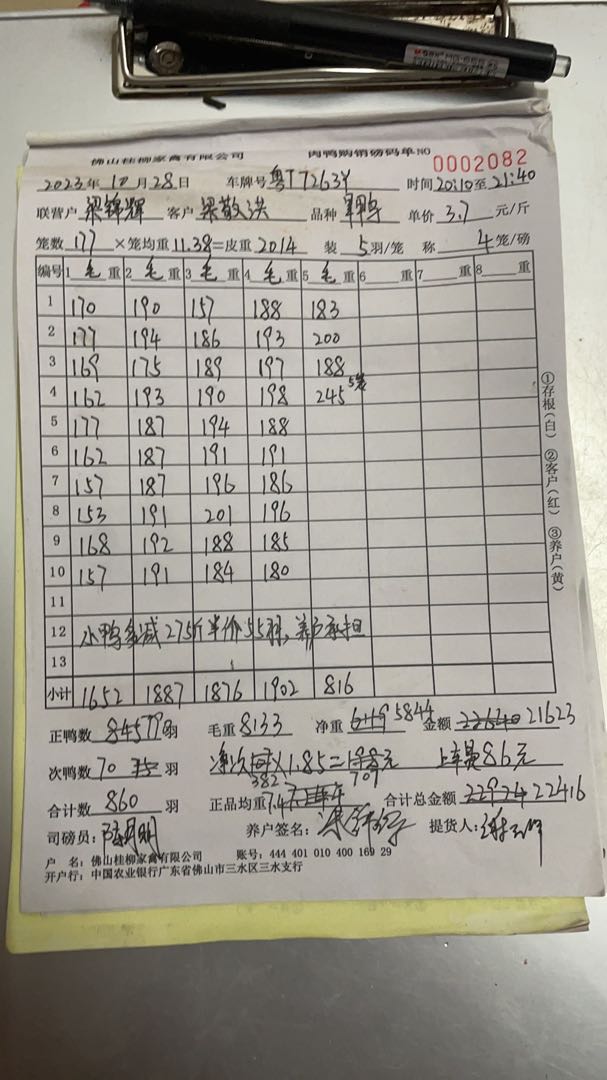 佛山桂柳家禽有限公司 肉鸭购销磅码单 NO 0002082
2023年10月28日 车牌号 粤T7263Y 时间 20:10至21:40
联营户 梁锦辉 客户 梁敬洪 品种 单价 3.7 元/斤
笼数 177 ×笼均重 11.38=皮重 2014 装 5 羽/笼 称 4 笼/磅
编号 1 毛 重 2 毛 重 3 毛 重 4 毛 重 5 毛 重 6 重 7 重 8 重
1 170 190 157 188 183
2 177 194 186 193 200
3 169 175 189 197 188
4 162 193 190 198 245 5笼
5 177 187 194 188
6 162 187 191 191
7 157 187 196 186
8 153 191 201 196
9 168 192 188 185
10 157 191 184 180
11
12 小鸭多减275斤半价55羽、养户承担
13
小计 1652 1887 1876 1902 816
正鸭数 790羽 毛重 8133 净重 5844 金额 21623
次鸭数 70 羽 净次 382 ×1.85= 707 元 上车 86元
合计数 860 羽 正品均重 7.4 合计总金额 22416
司磅员: 养户签名: 提货人:
户 名:佛山桂柳家禽有限公司 账号:444 401 010 400 169 29
开户行:中国农业银行广东省佛山市三水区三水支行
①存根(白) ②客户(红) ③养户(黄)